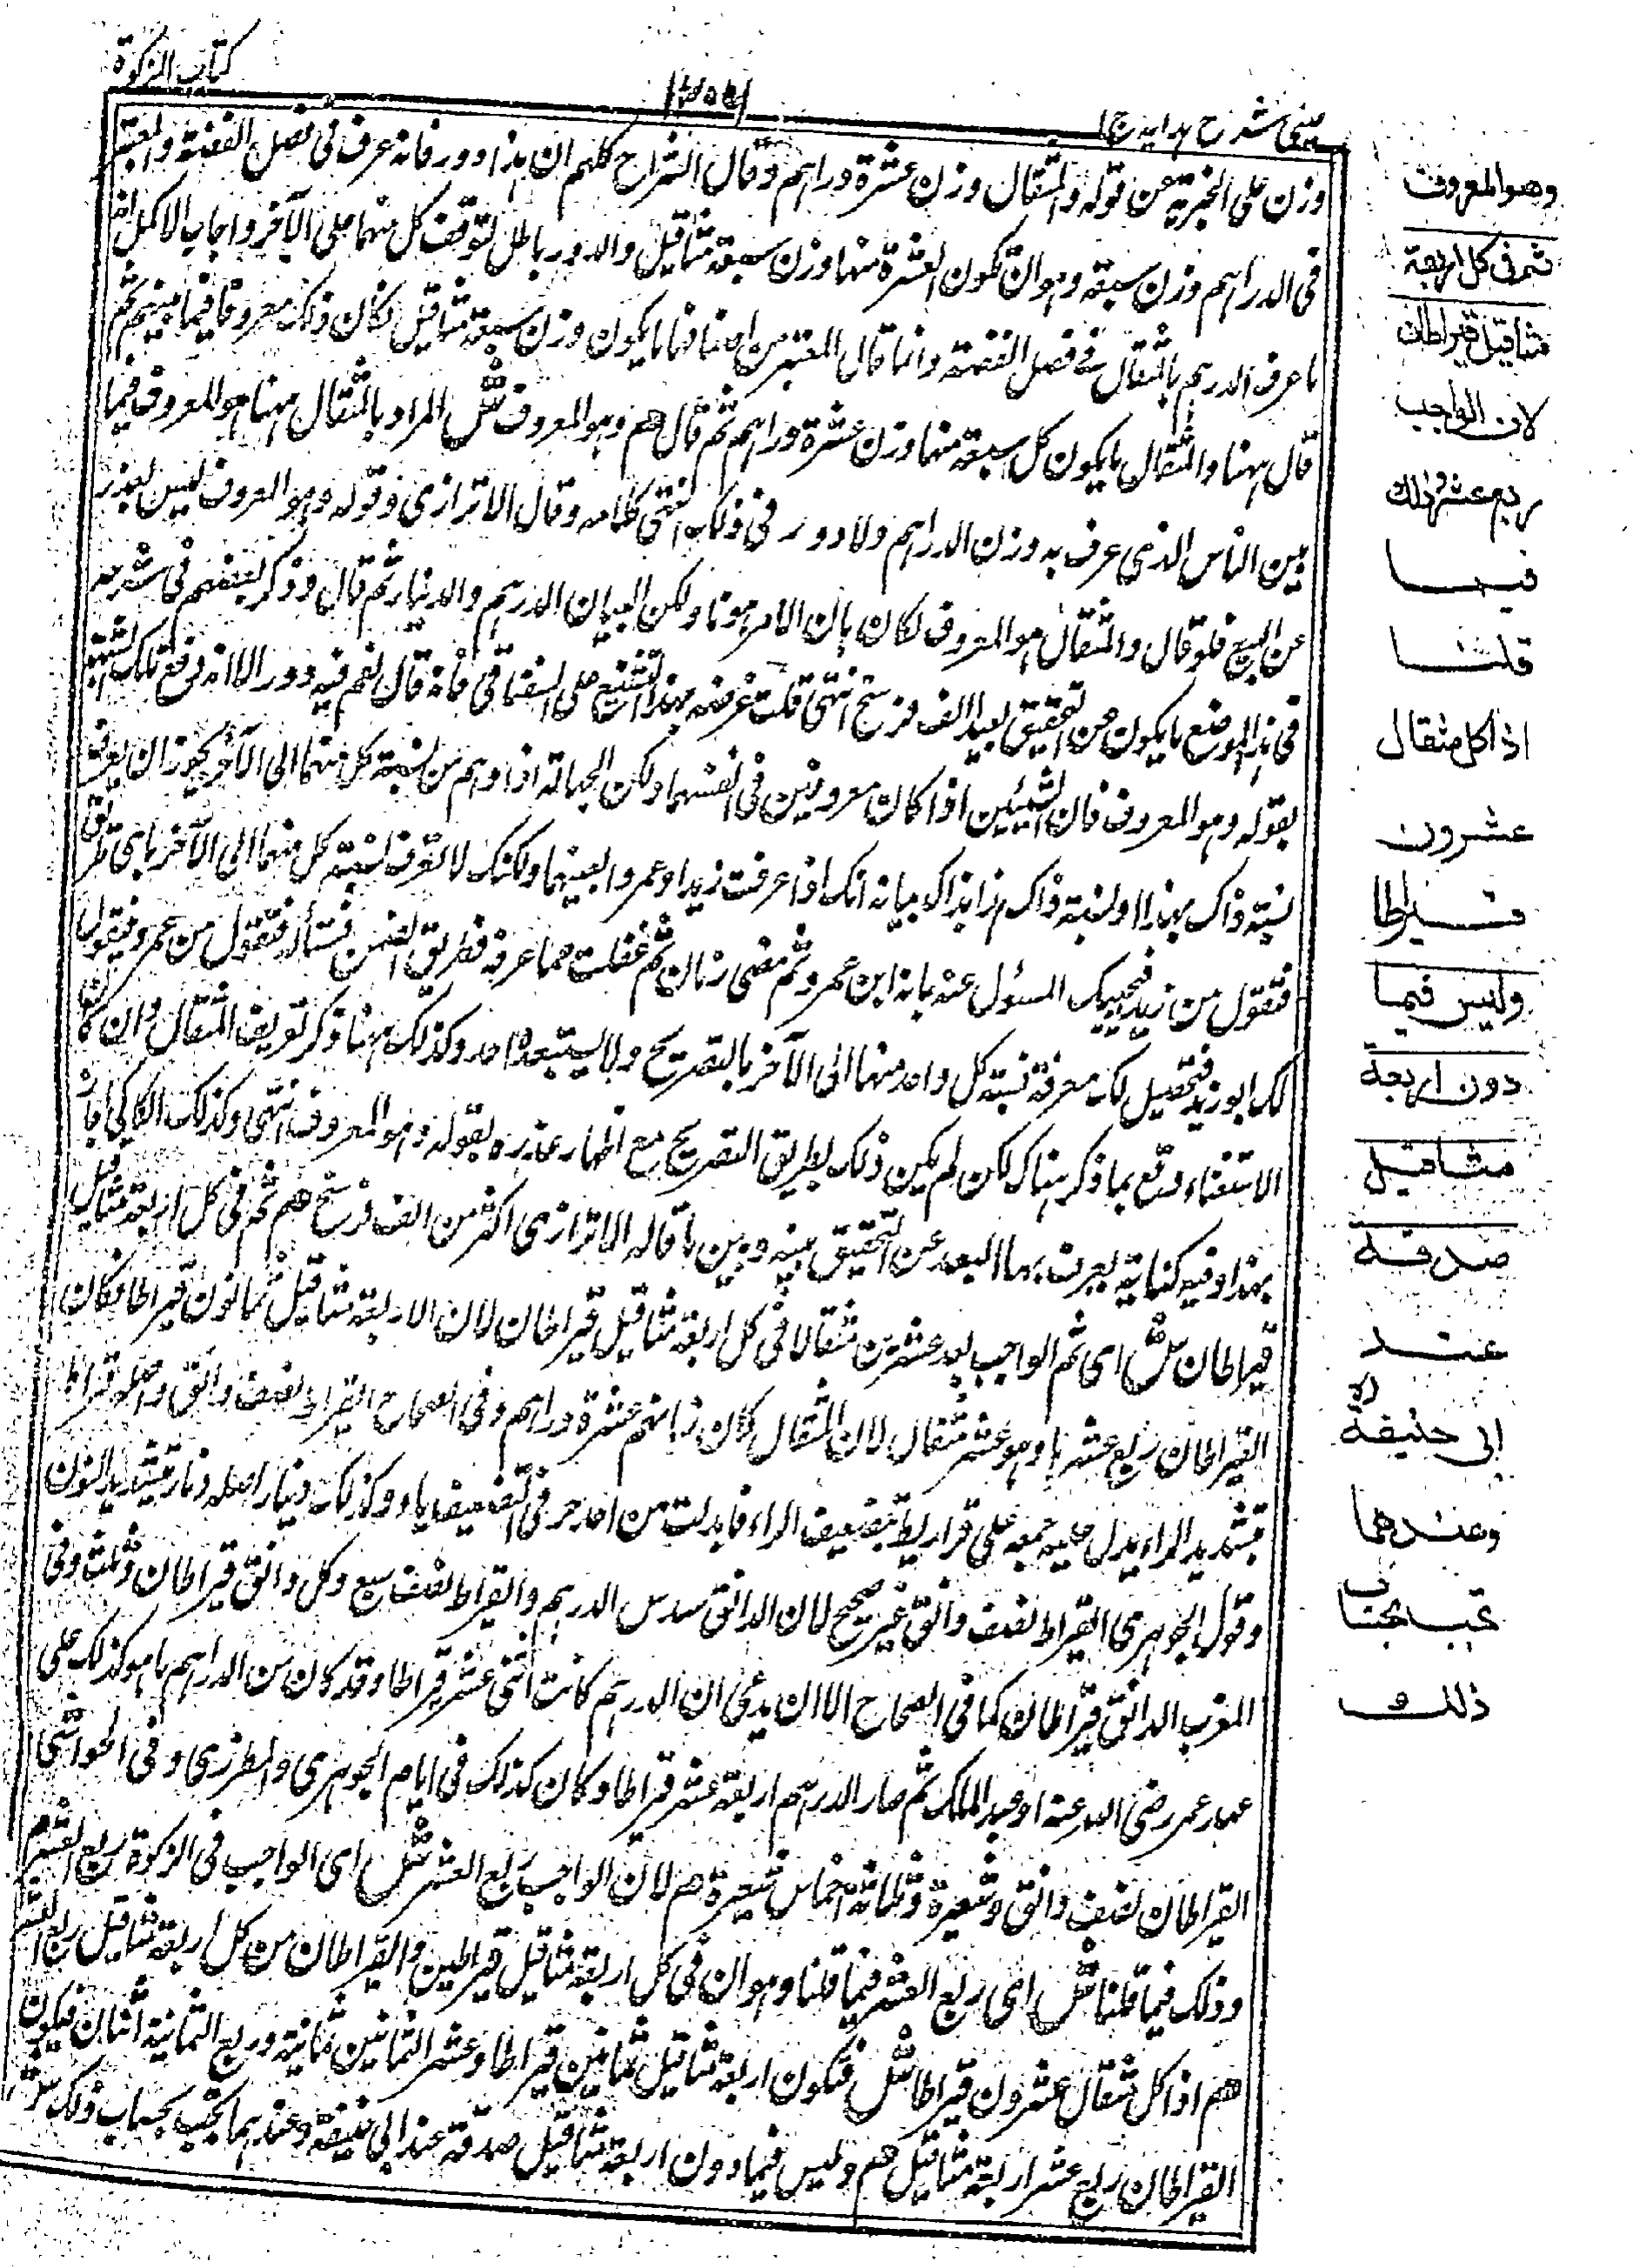 كتاب الزكوة
عينى شرح هدايه ج ا
وزن على الخبرية عن قوله والمثقال وزن عشرة دراهم وقال الشراح كلهم ان هذا دور فانه عرف فى فصل الفضة والمعتبر
فى الدراهم وزن سبعة وهو ان تكون العشرة منها وزن سبعة مثاقيل والدور باطل لتوقف كل منهما على الآخر واجاب الاكمل انه
ما عرف الدرهم بالمثقال فى فصل الفضة وانما قال المعتبر من اصنافها ما يكون وزن سبعة مثاقيل فكان ذلك معروفا فيما بينهم ثم
قال ههنا والمثقال ما يكون كل سبعة منها وزن عشرة دراهم ثم قال هم وهو المعروف ش المراد بالمثقال ههنا هو المعروف فيما
بين الناس الذى عرف به وزن الدراهم ولا دور فى ذلك انتهى كلامه وقال الاترازى وقوله وهو المعروف ليس بعذر
عن البيع فلو قال والمثقال هو المعروف لكان بان الامر هونا ولكن البيان الدرهم والدينار ثم قال وذكر بعضهم فى شرحه
فى هذا الموضع ما يكون من التحقيق بعيد الف فرسخ انتهى قلت غرضه بهذا التشنيع على السغناقى فانه قال نعم فيه دور الا انه دفع تلك الشبهة
بقوله وهو المعروف فان الشيئين اذا كان معروفين فى انفسهما ولكن الجهالة اذا وهم من نسبة كل منهما الى الآخر يجوز ان يعرف
نسبة ذاك بهذا او نسبة ذاك هذا بذاك بيانه انك اذا عرفت زيدا وعمروا بعينهما ولكنك لا تعرف نسبة كل منهما الى الآخر باى طريق
فتقول من زيد فيجيبك المسئول عنه بانه ابن عمرو ثم مضى زمان ثم غفلت عما عرفه فطريق الضمن فتسأله فتقول من عمرو فيقول
لك ابو زيد فتحصيل لك معرفة نسبة كل واحد منهما الى الآخر بالتصريح ولا يستبعده احد وكذلك ههنا ذكر تعريف المثقال وان كان
الاستغناء وقع بما ذكر هناك لكن لم يكن ذلك بطريق التصريح مع اظهار عذره بقوله وهو المعروف انتهى وكذلك الكاكى اجاب
بهذا وفيه كناية يعرف بها البعد عن التحقيق بينه وبين ما قاله الاترازى اكثر من الف فرسخ هم ثم فى كل اربعة مثاقيل
قيراطان ش اى ثم الواجب بعد عشرين مثقالا فى كل اربعة مثاقيل قيراطان لان الاربعة مثاقيل ثمانون قيراطا فكان
القيراطان ربع عشرها وهو عشر مثقال لان المثقال كان زمانهم عشرة دراهم وفى الصحاح القيراط نصف دانق واصله قراط
بتشديد الراء يدل عليه جمعه على قراريط بتضعيف الراء فابدلت من احد حرفى التضعيف ياء وكذلك دينار اصله دنار بتشديد النون
وقول الجوهرى القيراط نصف دانق غير صحيح لان الدانق سدس الدرهم والقيراط نصف سبع وكل دانق قيراطان وثلث وفى
المغرب الدانق قيراطان كما فى الصحاح الا ان يدعى ان الدرهم كانت اثنى عشر قيراطا وقد كان من الدراهم ما هو كذلك على
عهد عمر رضى الله عنه او عبد الملك ثم صار الدرهم اربعة عشر قيراطا وكان كذلك فى ايام الجوهرى والمطرزى وفى الحواشى
القيراطان نصف دانق وشعيرة وثلاثة اخماس شعيرة هم لان الواجب ربع العشر ش اى الواجب فى الزكوة ربع العشر هم
وذلك فيما قلنا ش اى ربع العشر فيما قلنا وهو ان فى كل اربعة مثاقيل قيراطين والقيراطان من كل اربعة مثاقيل ربع العشر
هم اذا كل مثقال عشرون قيراطا ش فتكون اربعة مثاقيل ثمانين قيراطا وعشر الثمانين ثمانية وربع الثمانية اثنان فيكون
القيراطان ربع عشر اربعة مثاقيل هم وليس فيما دون اربعة مثاقيل صدقة عند ابى حنيفة وعندهما تجب بحساب ذلك ش
وهو المعروف
ثم فى كل اربعة
مثاقيل قيراطان
لان الواجب
ربع عشر وذلك
فيما
قلنا
اذا كل مثقال
عشرون
قيراطا
وليس فيما
دون اربعة
مثاقيل
صدقة
عند
ابى حنيفة
وعندهما
تجب بحساب
ذلك و